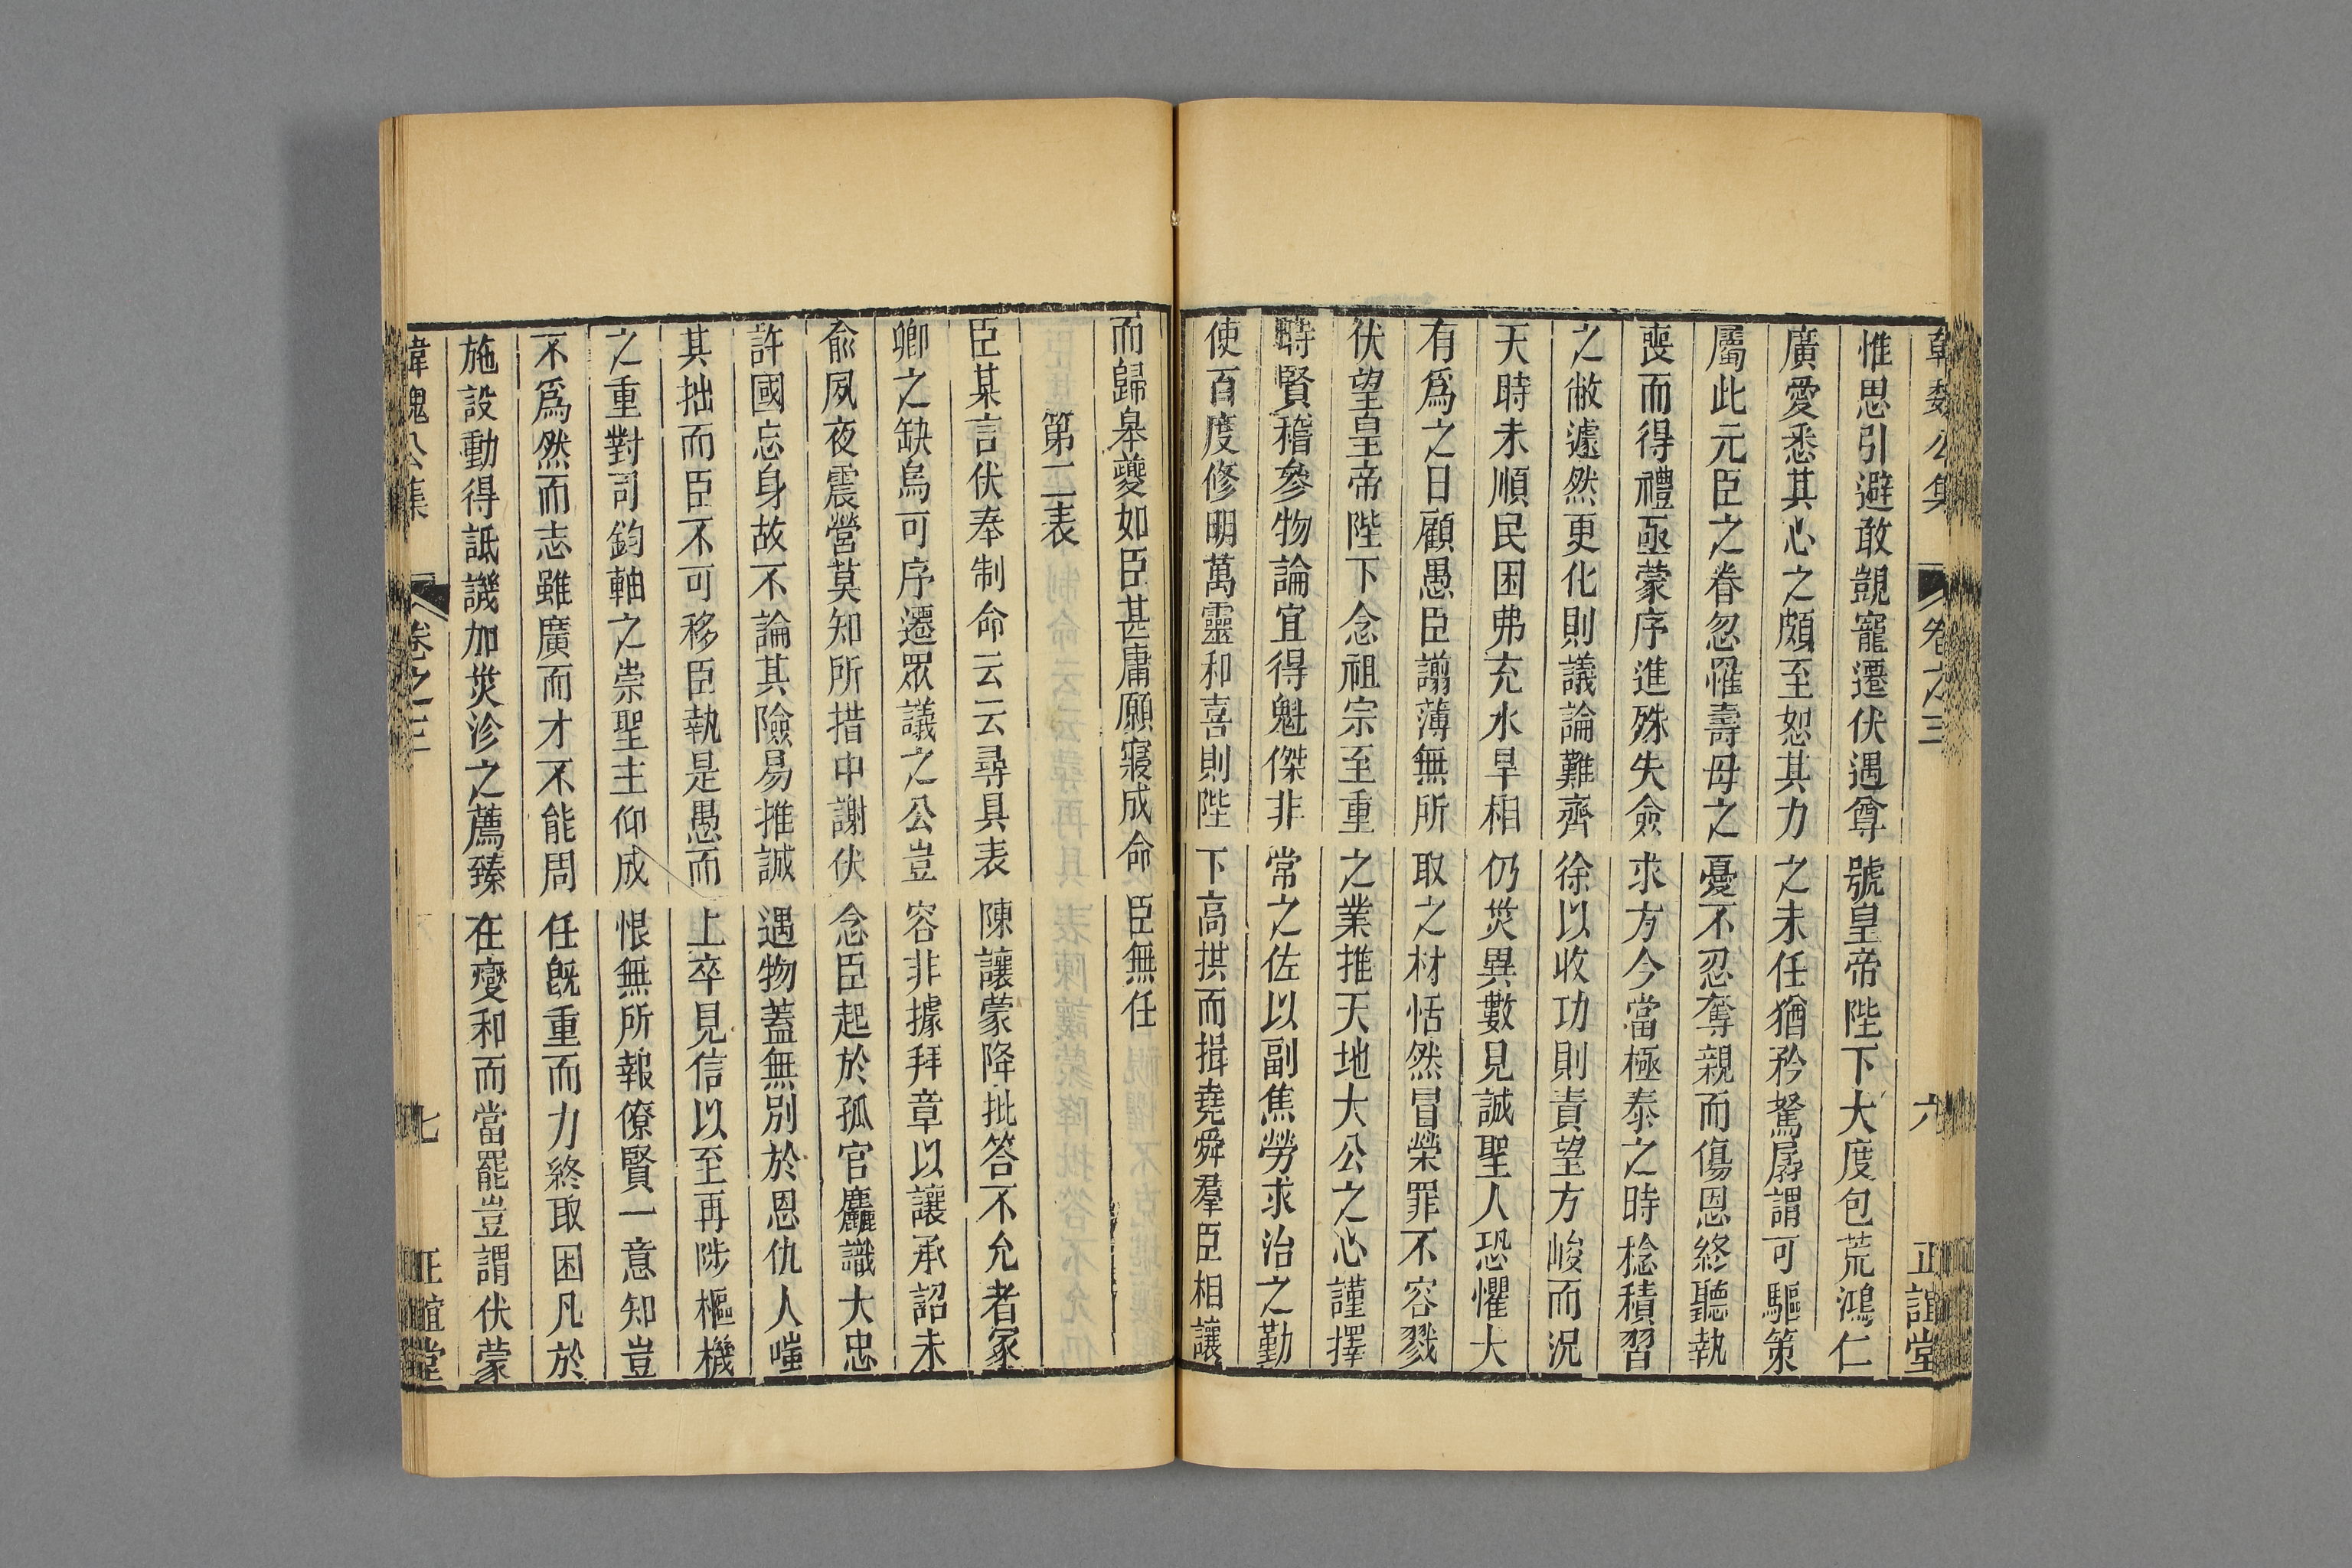 韓魏公集 卷之三 六 正誼堂
惟思引避敢覬寵遷伏遇尊號皇帝陛下大度包荒鴻仁
廣愛悉其心之頗至恕其力之未任猶矜駑孱謂可驅策
屬此元臣之眷忽罹壽母之憂不忍奪親而傷恩終聽執
喪而得禮亟蒙序進殊失僉求方今當極泰之時棯積習
之敝遽然更化則議論難齊徐以收功則責望方峻而況
天時未順民困弗充水旱相仍災異數見誠聖人恐懼大
有爲之日顧愚臣謭薄無所取之材恬然冒榮罪不容戮
伏望皇帝陛下念祖宗至重之業推天地大公之心謹擇
時賢稽參物論宜得魁傑非常之佐以副焦勞求治之勤
使百度修明萬靈和喜則陛下高拱而揖堯舜羣臣相讓
而歸皋夔如臣甚庸願寢成命臣無任
第二表
臣某言伏奉制命云云尋具表陳讓蒙降批答不允者冢
卿之缺烏可序遷眾議之公豈容非據拜章以讓承詔未
俞夙夜震營莫知所措中謝伏念臣起於孤官麤識大忠
許國忘身故不論其險易推誠遇物蓋無別於恩仇人嗤
其拙而臣不可移臣執是愚而上卒見信以至再陟樞機
之重對司鈞軸之崇聖主仰成恨無所報僚賢一意知豈
不爲然而志雖廣而才不能周任旣重而力終取困凡於
施設動得詆譏加災沴之薦臻在燮和而當罷豈謂伏蒙
韓魏公集 卷之三 七 正誼堂